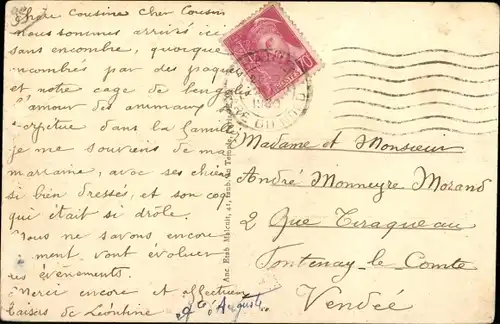 Chère Cousine Cher Cousin
nous sommes arrivés ici
sans encombre, quoique
encombrés par des paquets
et notre cage de bengalis
l'amour des animaux
perpétue dans la famille
je me souviens de ma
marraine, avec ses chiens
si bien dressés, et son coq
qui était si drôle.
Nous ne savons encore
ment vont évoluer
les évènements.
Merci encore et affectueux
baisers de Léontine
et d'Auguste
POSTES 70
Anc Etab Malcuit, 41, faub. du Temple
Madame et Monsieur
André Monneyre Morand
2 Rue Tiraqueau
Fontenay-le Comte
Vendée